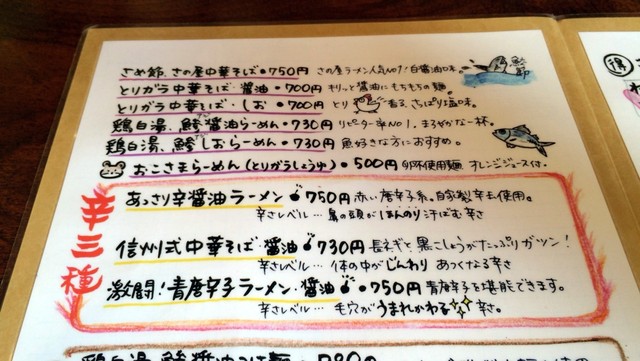 さめ節、さの屋中華そば・750円 さの屋ラーメン人気No1!白醤油味。
鮫節
とりガラ中華そば・醤油・700円 キリッと醤油にもちもちの麺。
とりガラ中華そば・しお・700円 とり香る、さっぱり塩味。
鶏白湯、鯵醤油らーめん・730円 リピーター率No1。まろやかな一杯。
鶏白湯、鯵しおらーめん・730円 魚好きな方におすすめ。
おこさまらーめん(とりがらしょうゆ)・500円 卵不使用麺 オレンジジュース付。
辛三種
あっさり辛醤油ラーメン 750円 赤い唐辛子系。自家製辛玉使用。
辛さレベル…鼻の頭がほんのり汗ばむ辛さ
信州式中華そば・醤油 730円 長ネギと黒こしょうがたっぷりガツン!
辛さレベル…体の中がじんわりあつくなる辛さ
激闘!青唐辛子ラーメン・醤油 750円 青唐辛子を堪能できます。
辛さレベル…毛穴がうまれかわる辛さ。
得